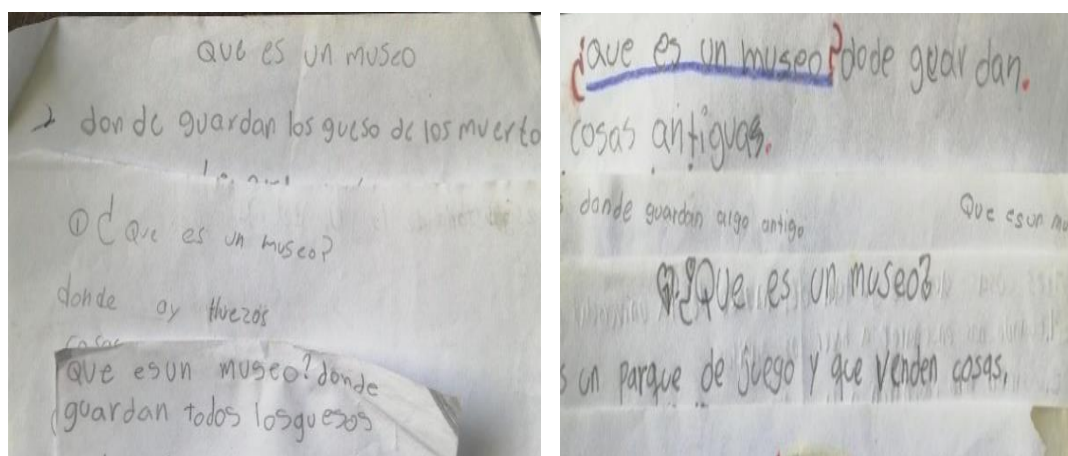 Que es un museo
donde guardan los gueso de los muerto
① ¿ Que es un museo?
donde ay Huezos
cosas
Que es un museo? donde
guardan todos los guesos
¿que es un museo? dode guardan.
cosas antiguas.
donde guardan algo antigo
Que es un mu
¿Que es un museo?
s un parque de Juego y que venden cosas,